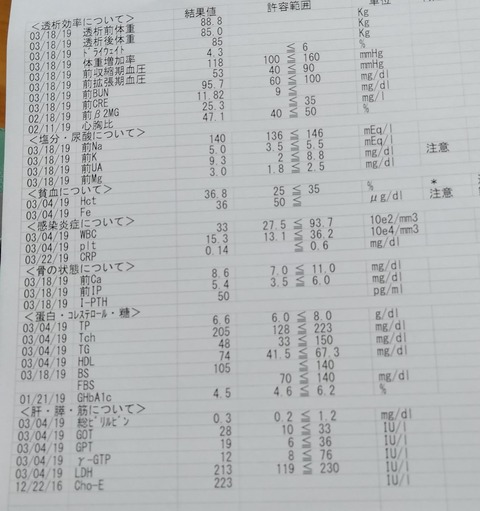 結果値 許容範囲 単位
<透析効率について>
03/18/19 透析前体重 88.8 Kg
03/18/19 透析後体重 85.0 Kg
03/18/19 ドライウェイト 85 Kg
03/18/19 体重増加率 4.3 ≦ 6 %
03/18/19 前収縮期血圧 118 100 ≦ 160 mmHg
03/18/19 前拡張期血圧 53 40 ≦ 90 mmHg
03/18/19 前BUN 95.7 60 ≦ 100 mg/dl
03/18/19 前CRE 11.82 9 ≦ mg/dl
02/18/19 前β2MG 25.3 ≦ 35 mg/l
02/11/19 心胸比 47.1 40 ≦ 50 %
<塩分・尿酸について>
03/18/19 前Na 140 136 ≦ 146 mEq/l
03/18/19 前K 5.0 3.5 ≦ 5.5 mEq/l
03/18/19 前UA 9.3 2 ≦ 8.8 mg/dl 注意
03/18/19 前Mg 3.0 1.8 ≦ 2.5 mg/dl
<貧血について>
03/04/19 Hct 36.8 25 ≦ 35 % *
03/04/19 Fe 36 50 ≦ μg/dl 注意
<感染炎症について>
03/04/19 WBC 33 27.5 ≦ 93.7 10e2/mm3
03/04/19 plt 15.3 13.1 ≦ 36.2 10e4/mm3
03/22/19 CRP 0.14 ≦ 0.6 mg/dl
<骨の状態について>
03/18/19 前Ca 8.6 7.0 ≦ 11.0 mg/dl
03/18/19 前IP 5.4 3.5 ≦ 6.0 mg/dl
03/18/19 I-PTH 50 pg/ml
<蛋白・コレステロール・糖>
03/04/19 TP 6.6 6.0 ≦ 8.0 g/dl
03/04/19 Tch 205 128 ≦ 223 mg/dl
03/04/19 TG 48 33 ≦ 150 mg/dl
03/04/19 HDL 74 41.5 ≦ 67.3 mg/dl
03/18/19 BS 105 ≦ 140
FBS 70 ≦ 140 mg/dl
01/21/19 GHbA1c 4.5 4.6 ≦ 6.2 %
<肝・膵・筋について>
03/04/19 総ビリルビン 0.3 0.2 ≦ 1.2 mg/dl
03/04/19 GOT 28 10 ≦ 33 IU/l
03/04/19 GPT 19 6 ≦ 36 IU/l
03/04/19 γ-GTP 12 8 ≦ 76 IU/l
03/04/19 LDH 213 119 ≦ 230 IU/l
12/22/16 Cho-E 223 IU/l